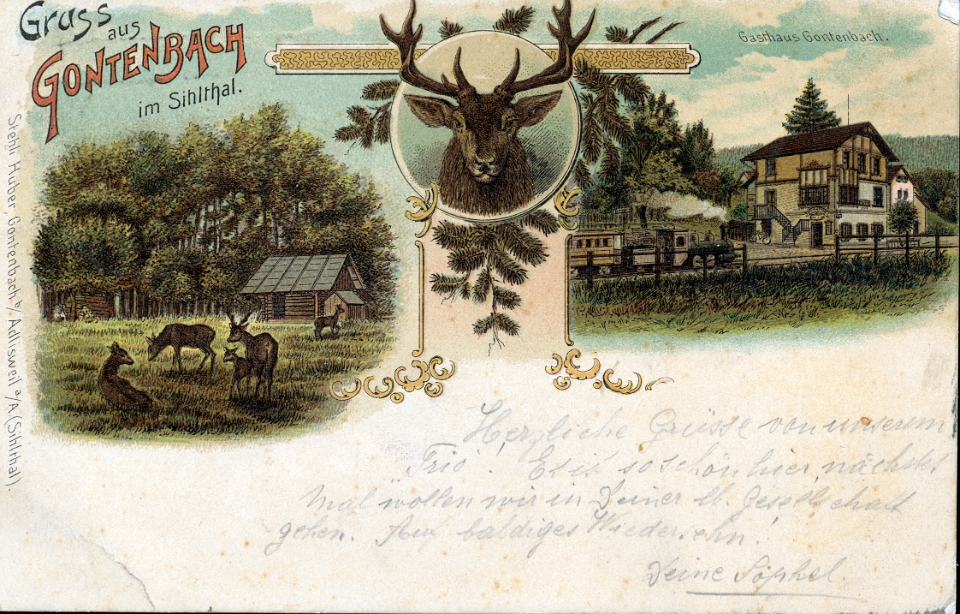 Gruss aus
GONTENBACH
im Sihlthal.
Gasthaus Gontenbach.
Stehli Huber, Gontenbach b/ Adlisweil a/A (Sihlthal).
Herzliche Grüsse von unserem
Trio! Es ist so schön hier, nächstes
Mal wollen wir in Deiner lb. Gesellschaft
gehen. Auf baldiges Wiedersehn!
Deine